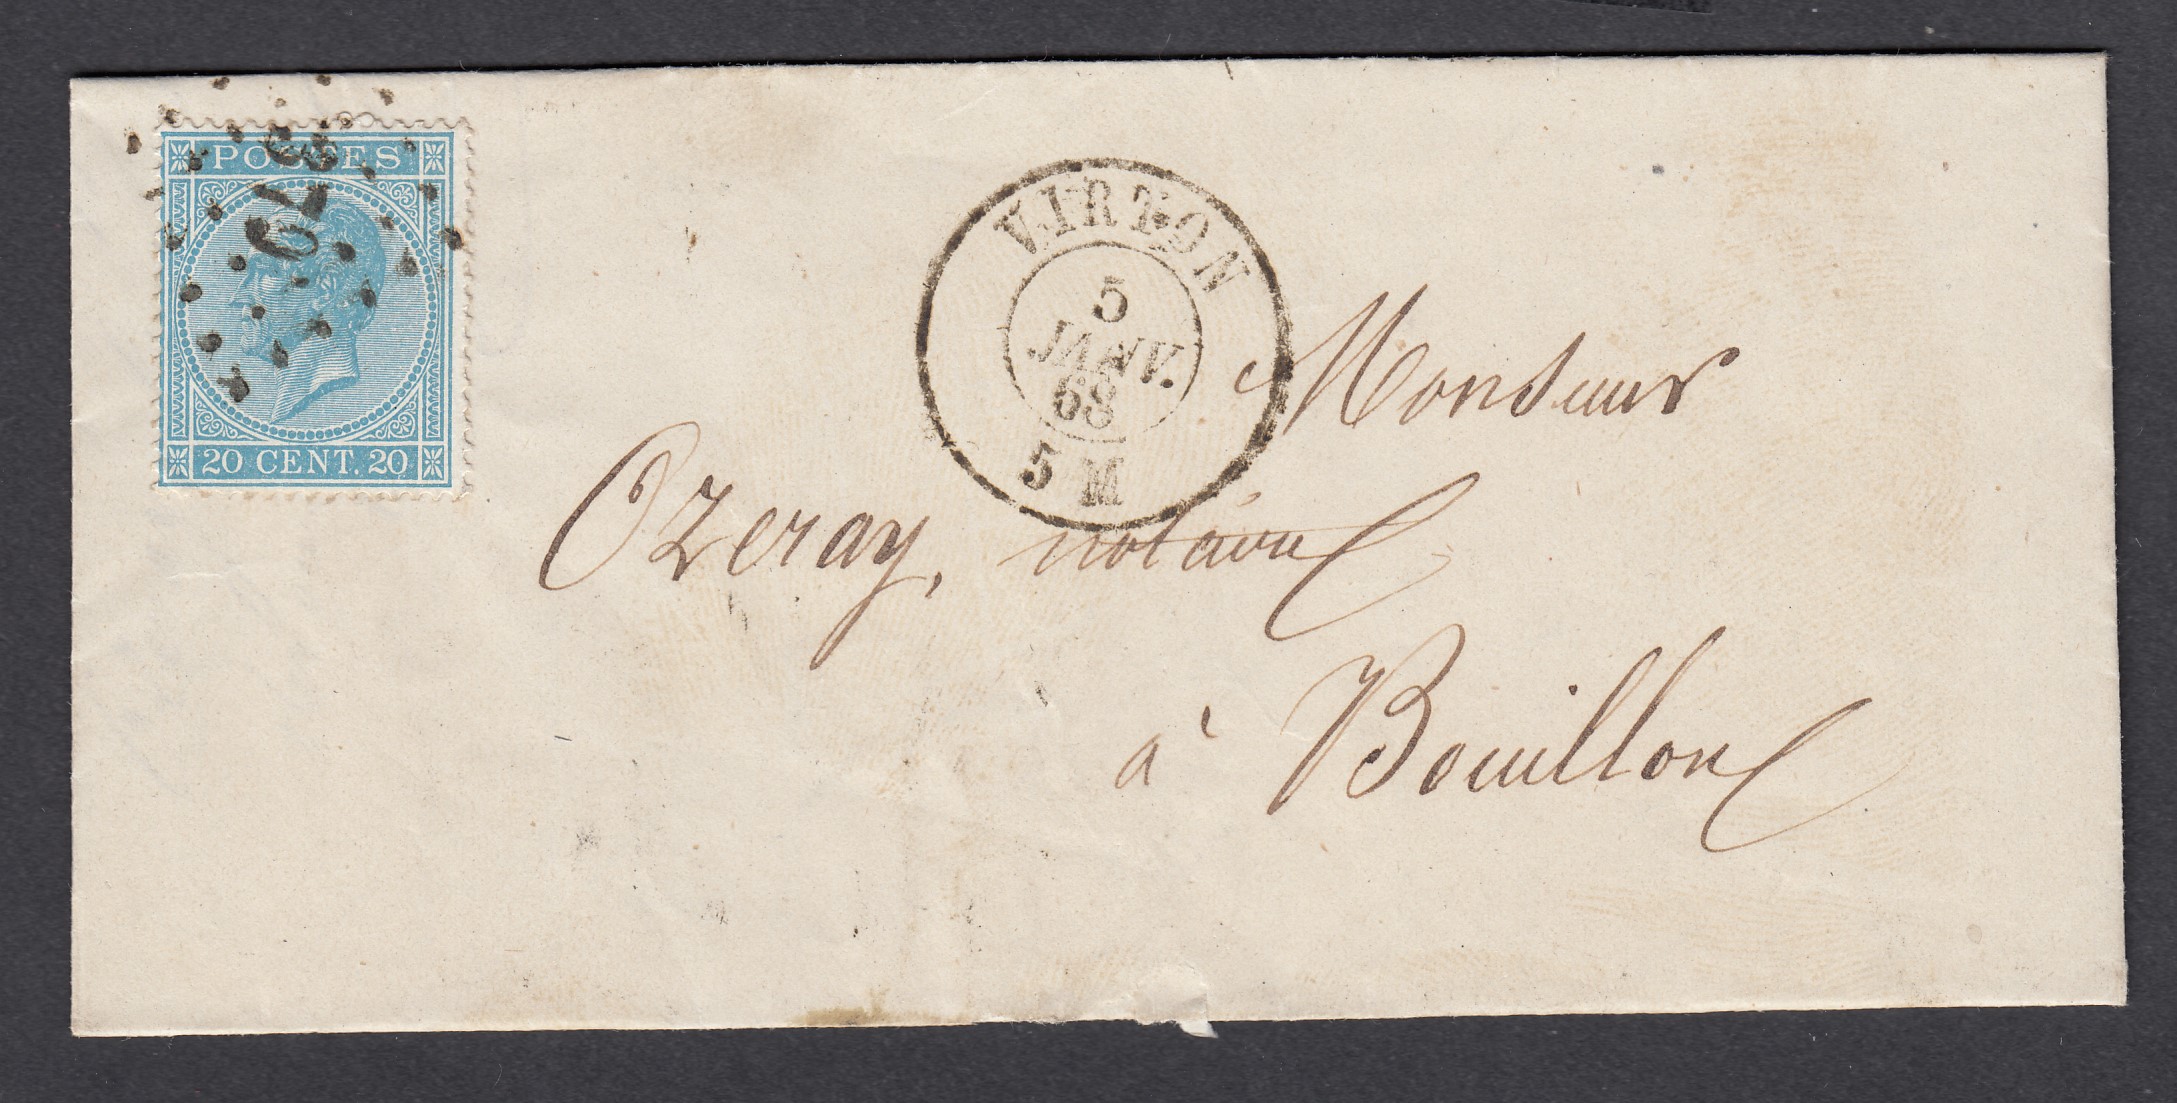 POSTES
379
20 CENT. 20
VIRTON
5
JANV.
68
5 M
Monsieur
Ozeray, notaire
à Bouillon